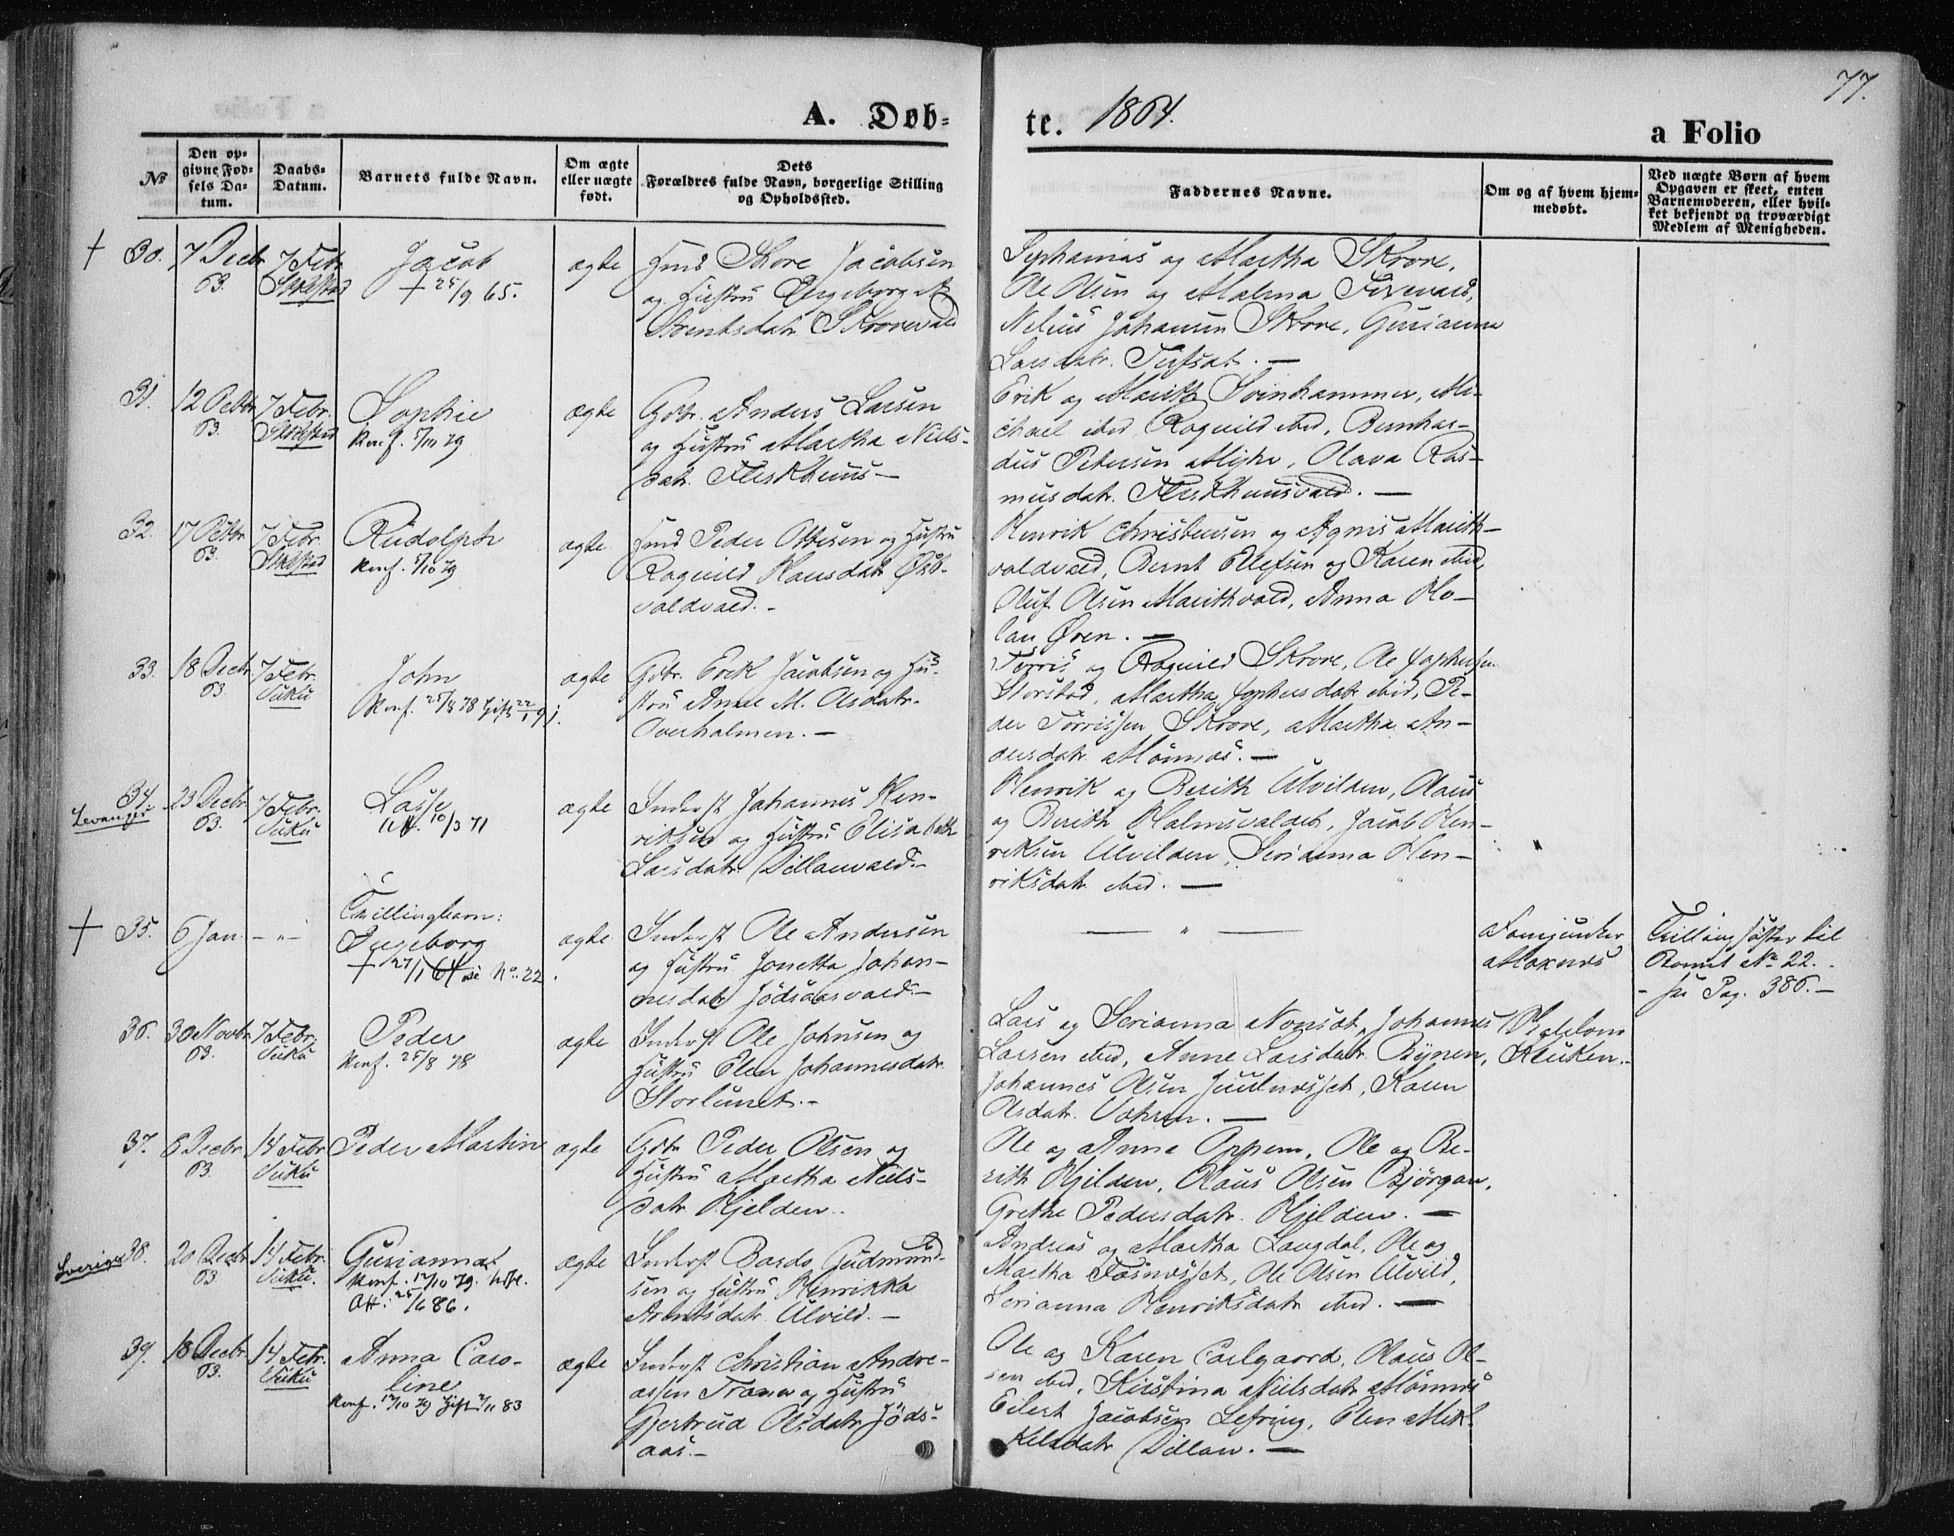 77.
A. Døb-
te. 1864.
a Folio
No
Den op-
givne Fød-
sels Da-
tum.
Daabs-
Datum.
Barnets fulde Navn.
Om ægte
eller uægte
født.
Dets
Forældres fulde Navn, borgerlige Stilling
og Opholdssted.
Faddernes Navne.
Om og af hvem hjem-
medøbt.
Ved uægte Børn af hvem
Opgaven er skeet, enten
Barnemoderen, eller hvil-
ket bekjendt og troværdigt
Medlem af Menigheden.
+ 30. 7 Decbr 63. 7 Febr Skolstad
Jacob
+ 25/9 65.
ægte
Hmd Skove Jacobsen
og Hustru Ingeborg
Bentsdatr. Skrovevald
og Martha Skrove,
Ole Olsen og Malena
Nelius Johansen Skrove, Gurianna
Larsdatr.
31. 12 Octbr 63. 7 Febr. Skolstad
Sophie
Konf. 5/10 79
ægte
Gdbr. Anders Larsen
og Hustru Martha Niels-
datr. Fleskhuus
Erik og Marith Svinhammer, Mi-
chael ibid Ragnild ibid, Bernhar-
dus Petersen Myhr, Olava Ras-
musdatr. Fleskhuusvald.
32. 17 Octbr 63. 7 Febr. Skolstad
Rudolph
Konf. 5/10 79
ægte
Hmd Peder Ottesen og Hustru
Ragnild Hansdatr Øst-
voldvald.
Henrik Christensen og Agnis Marith-
voldvald, Bernt Ellefsen og Karen ibid,
Oluf Olsen Marithvold, Anna Ho-
lan Øren.
33. 18 Decbr 63. 7 Febr.
John
Konf. 25/8 78 Gift 22/1 91.
ægte
Gdbr. Erik Jacobsen og Hu-
stru Anne M. Olsdatr.
Overholmen.
Torris og Ragnild Skrove, Ole
Storstad, Martha ibid, Pe-
der Torrissen Skrove, Martha An-
dersdatr. Mønnæs.
34. 23 Decbr 63. 7 Febr.
Levanger
Lasse
Utf. 10/3 71
ægte
Inderst Johannes Hen-
riksen og Hustru Elisabeth
Larsdatr. Dillanvald.
Henrik og Berith Ulvilden, Olaus
og Berith Holmsvaldet, Jacob Hen-
riksen Ulvilden, Serianna Hen-
riksdatr. ibid.
+ 35. 6 Jan. - " -
Trillingbarn:
Ingeborg
+ 27/1 64 se No. 22.
ægte
Inderst Ole Andersen
og Hustru Jonetta Johan-
nesdatr Jødsaasvald.
— " —
Moknæs
Trillingsøster til
No 22.
Pag. 386.
36. 30 Novbr 63. 7 Febr.
Peder
Konf. 25/8 78
ægte
Inderst Ole Johnsen og
Hustru Elen Johannesdatr
Storlunet.
Lars og Serianna Nonsdt, Johannes
Larsen ibid, Anne Larsdatr. Bynen,
Johannes Olsen Juulnæsset, Karen
Olsdatr.
Kluken.
37. 8 Decbr 63. 14 Febr
Peder Martin
ægte
Gdbr Peder Olsen og
Hustru Martha Niels-
datr Hjelden.
Ole og Anne Oppem, Ole og Be-
rith Hjelden, Olaus Olsen Bjørgan,
Grethe Pedersdatr. Hjelden.
Sverige 38. 20 Decbr 63 14 Febr.
Gurianna
Konf. 12/10 79.
Att: 25/6 86.
ægte
Inderst Bardo Gudmund-
sen og Hustru Henrikka
Arentsdatr. Ulvild.
Andreas og Martha Langdal, Ole og
Martha Fosnæsset, Ole Olsen Ulvild,
Serianna Henriksdatr ibid.
39. 18 Decbr. 63. 14 Febr.
Anna Caro-
line
Konf. 12/10 79 Gift 2/11 83
ægte
Inderst Christian Andre-
assen Trana og Hustru
Gjertrud Olsdatr. Jøds-
aas.
Ole og Karen Carlgaard, Olaus Ol-
sen ibid, Kirstina Nielsdatr. Mønnæs
Eilert Jacobsen Lefring, Elen Mik-
kelsdatr. Dillan.